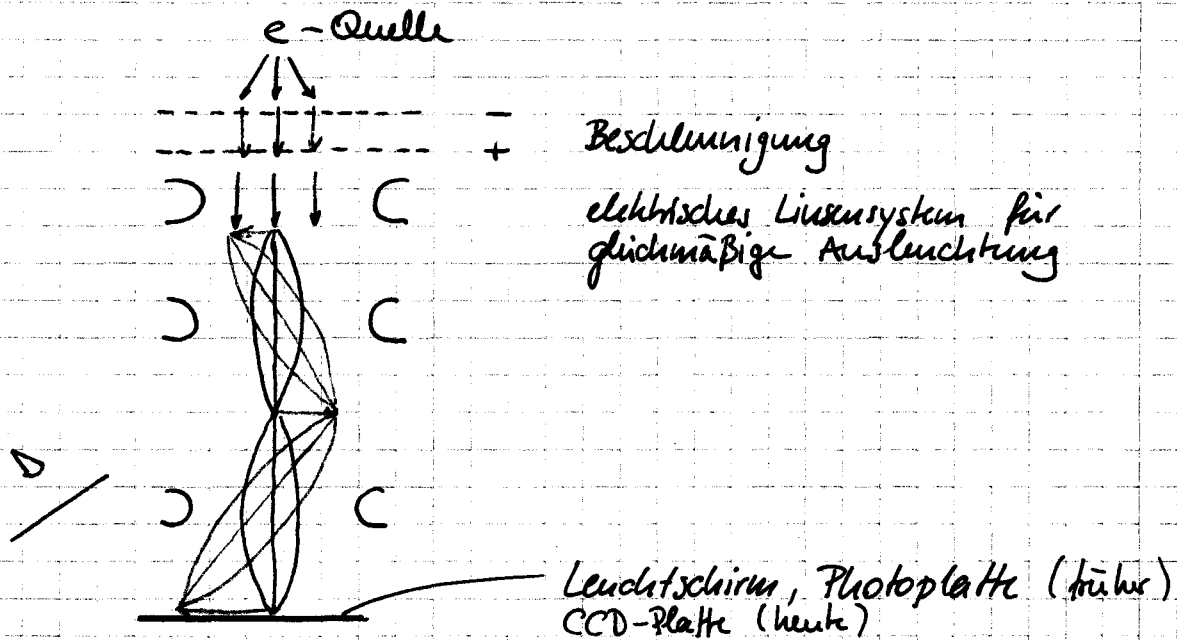 e-Quelle
-
+ Beschleunigung
elektrisches Linsensystem für
gleichmäßige Ausleuchtung
Leuchtschirm, Photoplatte (früher)
CCD-Platte (heute)